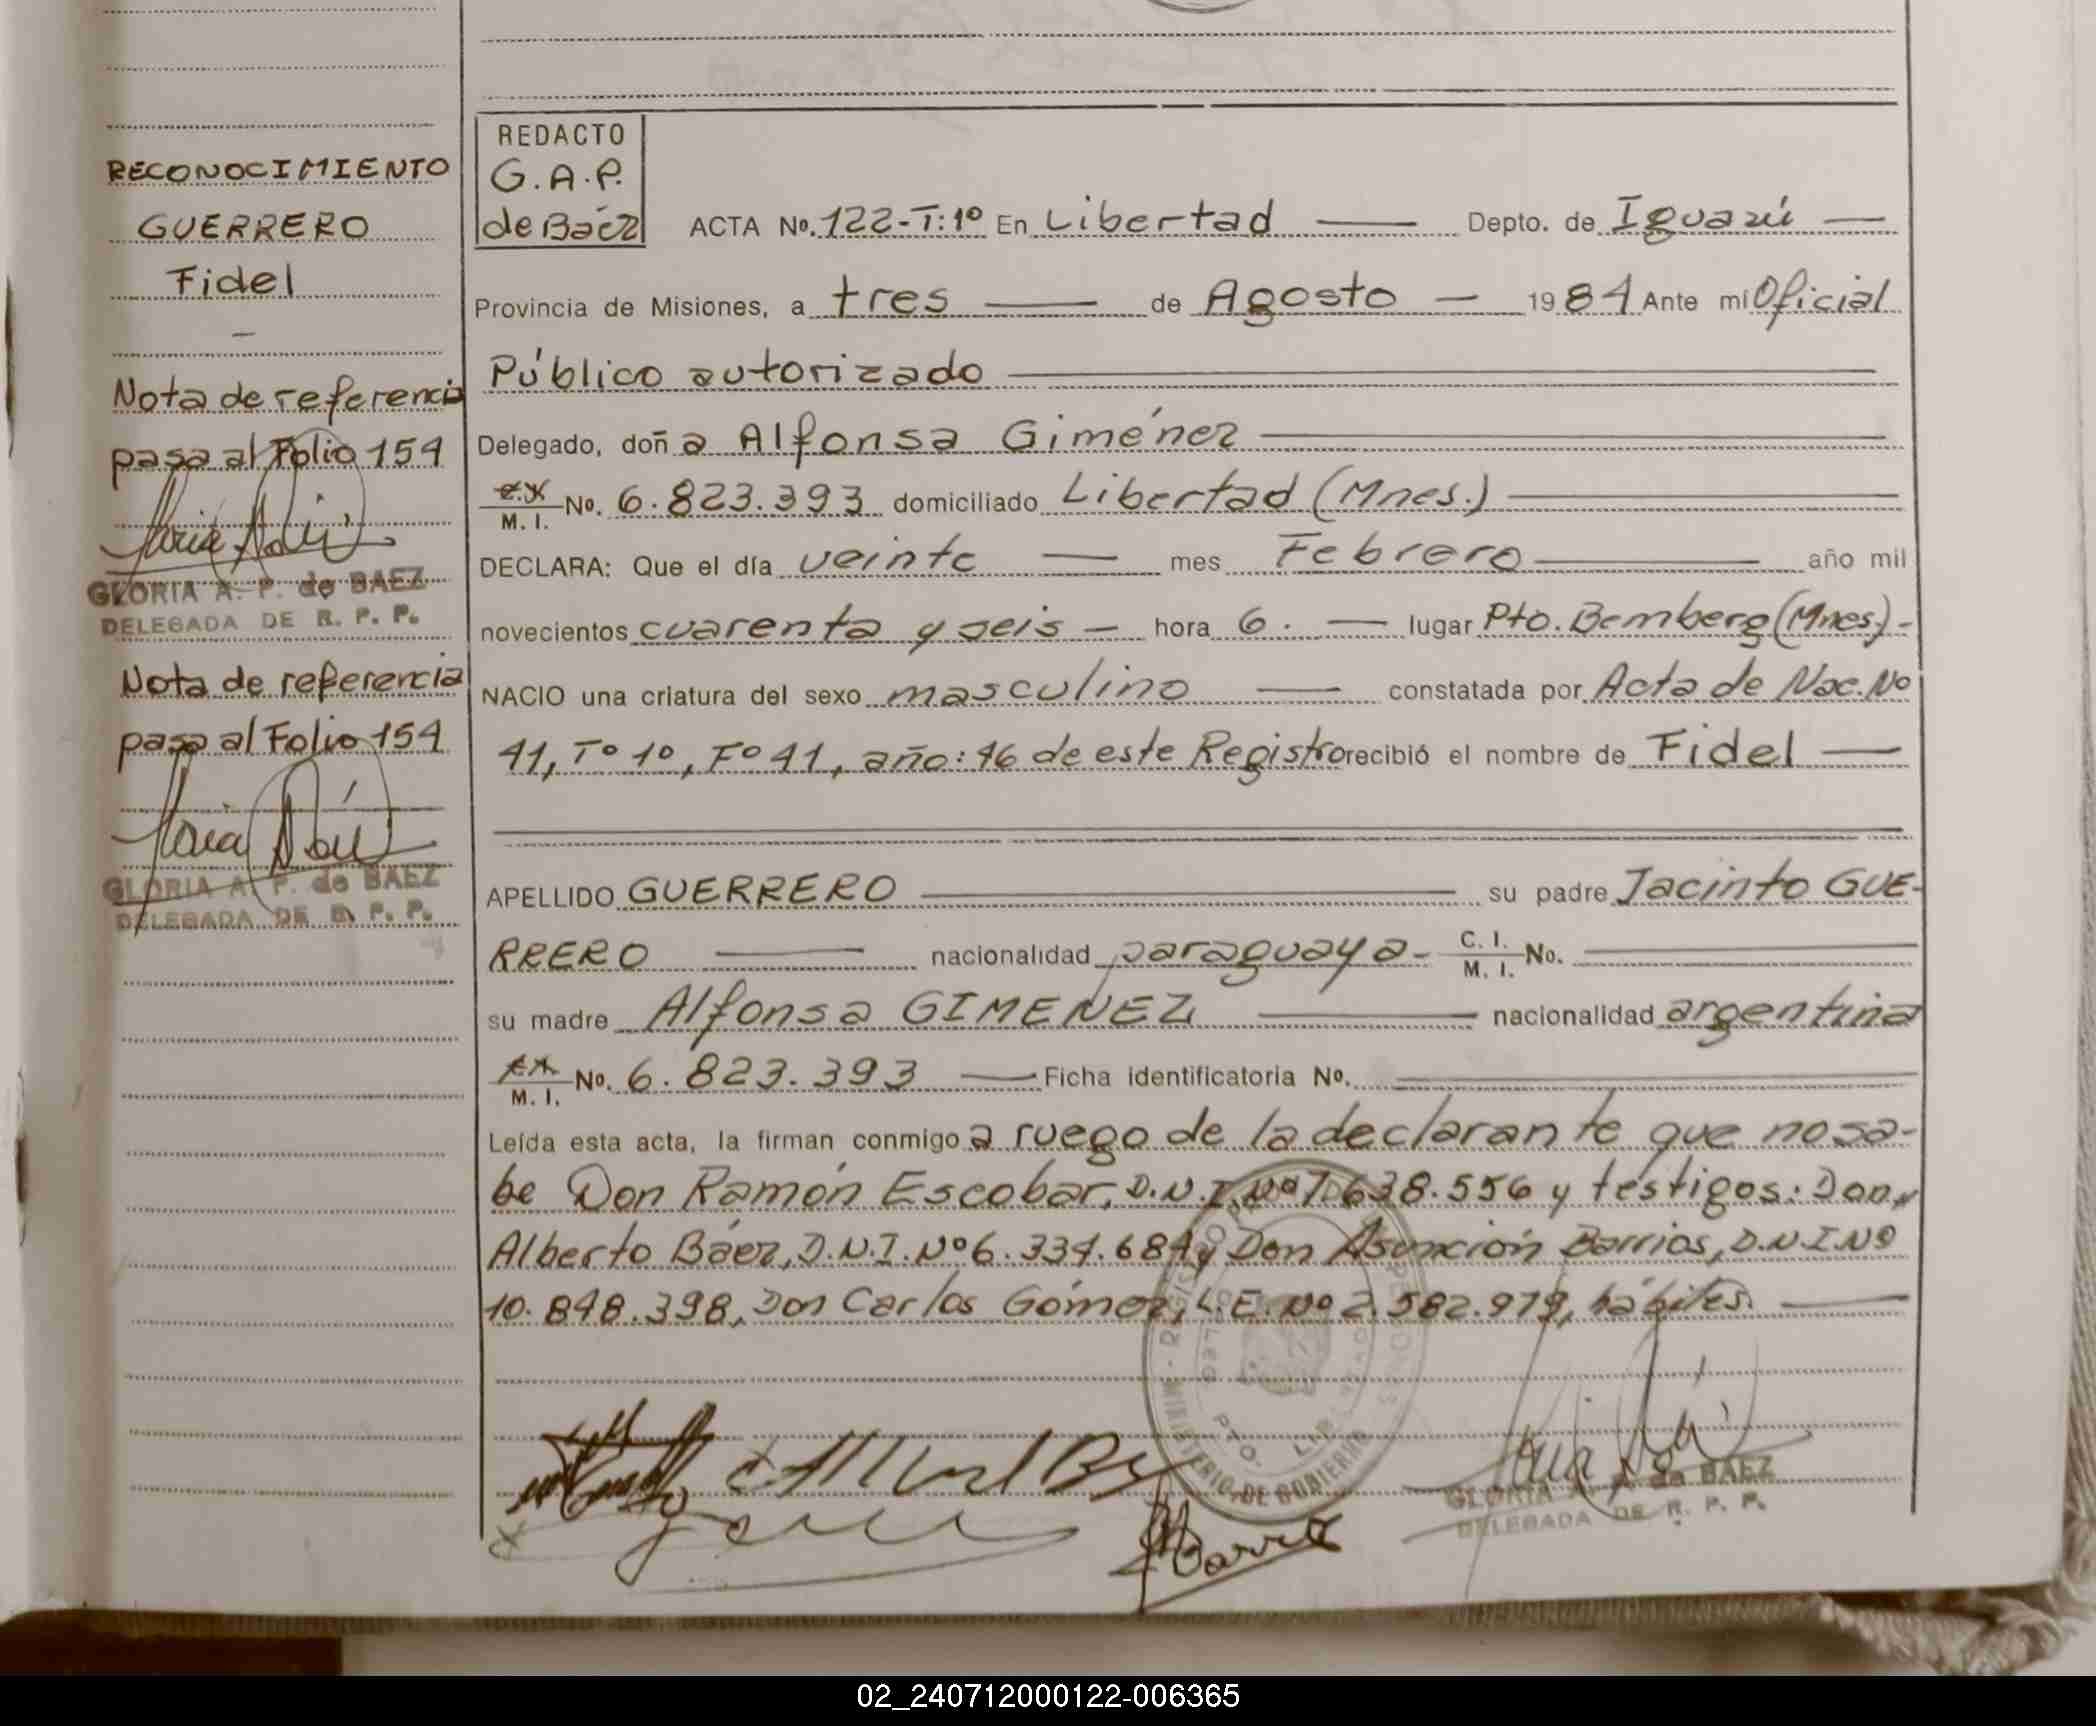 RECONOCIMIENTO
GUERRERO
Fidel
Nota de referencia
pasa al Folio 154
GLORIA A. P. de BAEZ
DELEGADA DE R. P. P.
Nota de referencia
pasa al Folio 154
GLORIA A. P. de BAEZ
DELEGADA DE R. P. P.
REDACTO
G.A.P.
de Báez
ACTA No. 122-T:1º En Libertad Depto. de Iguazú
Provincia de Misiones, a tres de Agosto 1984 Ante mi Oficial
Público autorizado
Delegado, doña Alfonsa Giménez
M. I. No. 6.823.393 domiciliado Libertad (Mnes.)
DECLARA: Que el día veinte mes Febrero año mil
novecientos cuarenta y seis hora 6. lugar Pto. Bemberg (Mnes.)-
NACIO una criatura del sexo masculino constatada por Acta de Nac. Nº
41, Tº 1º, Fº 41, año: 46 de este Registro recibió el nombre de Fidel
APELLIDO GUERRERO su padre Jacinto GUE-
RRERO nacionalidad paraguaya- C. I. M. I. No.
su madre Alfonsa GIMENEZ nacionalidad argentina
M. I. No. 6.823.393 Ficha identificatoria No.
Leída esta acta, la firman conmigo a ruego de la declarante que no sa-
be Don Ramón Escobar, D.N.I. Nº 7.638.556 y testigos: Don
Alberto Báez, D.N.I. Nº 6.334.684 y Don Asunción Barrios, D.N.I. Nº
10.848.398, Don Carlos Gómez, L.E. Nº 2.582.979, hábiles.
MINISTERIO DE GOBIERNO
GLORIA A. P. de BAEZ
DELEGADA DE R. P. P.
02_240712000122-006365